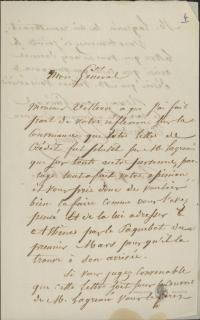 4
Mon Général
Monsieur Villevin à qui j'ai fait
part de votre réflexion sur la
convenance que cette lettre de
Crédit fut plutôt sur M. Lagrain
que sur toute autre personne, par-
tage tout à fait votre opinion
et vous prie donc de vouloir
bien la faire comme vous l'avez
pensé et de la lui adresser à
Athènes par le Paquebot du
premier Mars pour qu'il la
trouve à son arrivée.
Si vous jugez convenable
que cette lettre soit pour le
de M. Lagrain vous le ferez